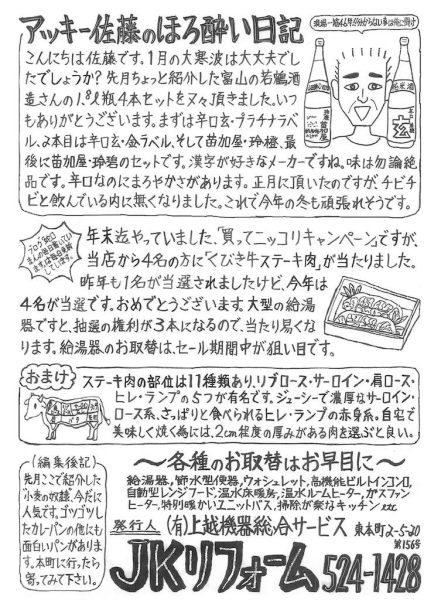 アッキー佐藤のほろ酔い日記
こんにちは佐藤です。1月の大寒波は大丈夫でし
たでしょうか?先月ちょっと紹介した富山の若鶴酒
造さんの1.8ℓ瓶4本セットを又々頂きました。いつ
もありがとうございます。まずは辛口玄・プラチナラベ
ル、2本目は辛口玄・金ラベル、そして苗加屋・玲橙、最
後に苗加屋・玲碧のセットです。漢字が好きなメーカーですね。味は勿論絶
品です。辛口なのにまろやかさがあります。正月に頂いたのですが、チビチ
ビと飲んでいる内に無くなりました。これで今年の冬も頑張れそうです。
年末迄やっていました、「買ってニッコリキャンペーン」ですが、
当店から4名の方に「くびき牛ステーキ肉」が当たりました。
昨年も1名が当選されましたけど、今年は
4名が当選です。おめでとうございます。大型の給湯
器ですと、抽選の権利が3本になるので、当たり易くな
ります。給湯器のお取替は、セール期間中が狙い目です。
おまけ
ステーキ肉の部位は11種類あり、リブロース・サーロイン・肩ロース・
ヒレ・ランプの5つが有名です。ジューシーで濃厚なサーロイン・
ロース系、さっぱりと食べられるヒレ・ランプの赤身系。自宅で
美味しく焼く為には、2cm程度の厚みがある肉を選ぶと良い。
(編集後記)
先月ここで紹介し
た「小麦の奴隷」、今だに
人気です。ゴツゴツし
たカレーパンの他にも
面白いパンがありま
す。本町に行ったら
寄ってみて下さい。
〜各種のお取替はお早目に〜
給湯器、節水型便器、ウォシュレット、高機能ビルトインコンロ、
自動型レンジフード、温水床暖房、温水ルームヒーター、ガスファン
ヒーター、特別暖かいユニットバス、掃除が楽なキッチン etc
発行人 (有)上越機器総合サービス 東本町2-5-20
第156号
JKリフォーム 524-1428